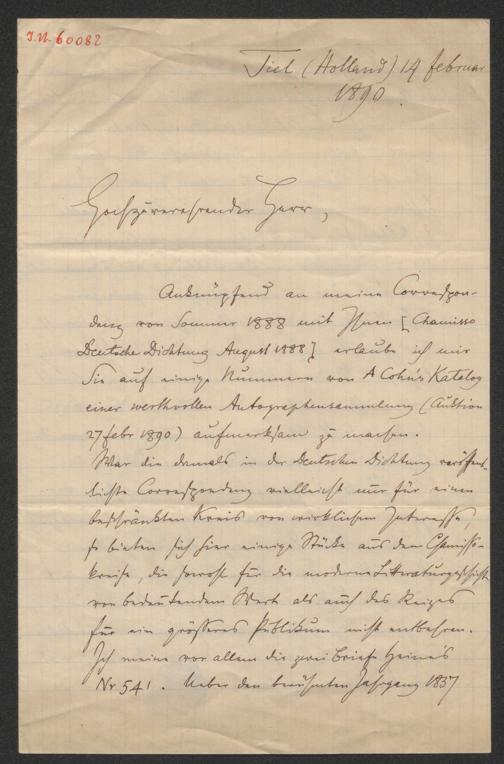 J.N. 60082
Tiel (Holland) 14 februar
1890.
Hochzuverehrender Herr,
Anknüpfend an meine Correspon-
denz von Sommer 1888 mit Ihnen [Chamisso
Deutsche Dichtung August 1888] erlaube ich mir
Sie auf einige Nummern von A Cohn's Katalog
einer werthvollen Autographensammlung (Auktion
27 febr 1890) aufmerksam zu machen.
War die damals in der Deutschen Dichtung veröffent-
lichte Correspondenz vielleicht nur für einen
beschränkten Kreis von wirklichem Interesse,
so bieten sich hier einige Stücke aus dem Chamisso-
kreise, die sowohl für die moderne Litteraturgeschichte
von bedeutendem Werth als auch des Reizes
für ein grösseres Publikum nicht entbehren.
Ich meine vor allem die zwei Briefe Heine's
Nr 541. Ueber den berühmten Jahrgang 1837